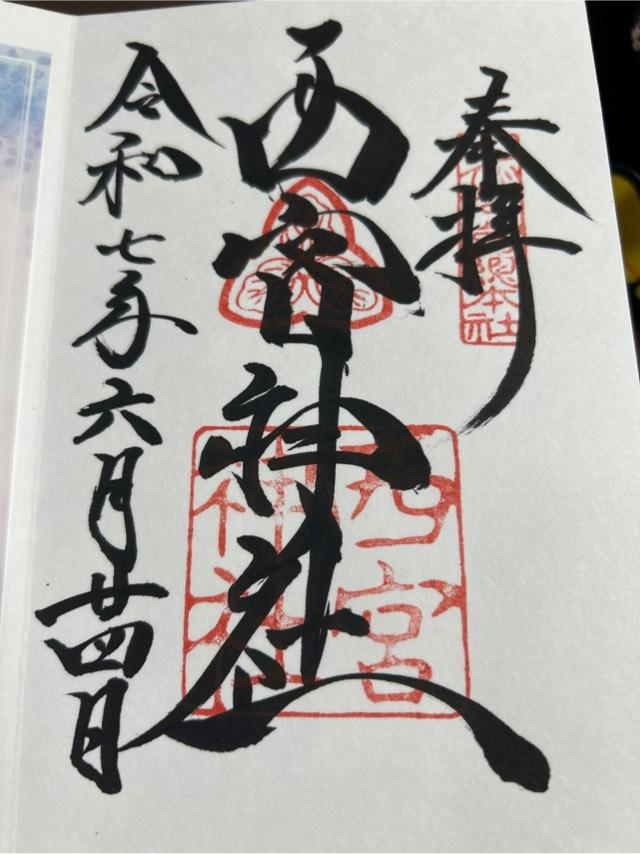 奉拝
西宮神社
令和七年六月廿四日
西宮
神社